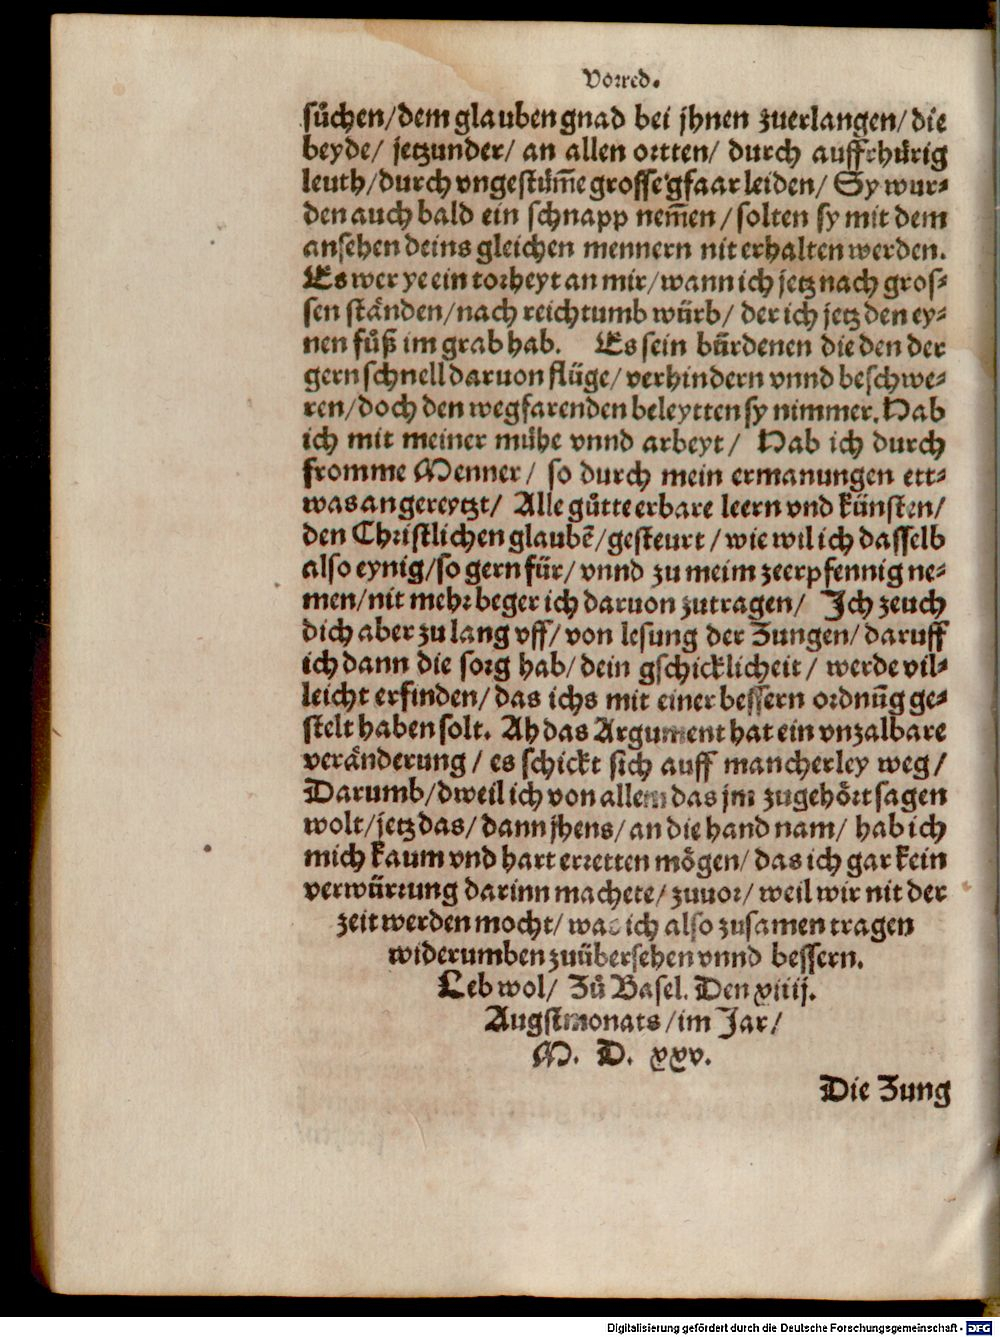 Vorred.
sůchen/dem glauben gnad bei jhnen zuerlangen/die
beyde/ jetzunder/ an allen ortten/ durch auffrhürig
leuth/durch vngestüm̃e grosse gfaar leiden/ Sy wur⸗
den auch bald ein schnapp nem̃en/solten sy mit dem
ansehen deins gleichen mennern nit erhalten werden.
Es wer ye ein torheyt an mir/wann ich jetz nach gros⸗
sen stånden/nach reichtumb würb/ der ich jetz den ey⸗
nen fůß im grab hab. Es sein bürdenen die den der
gern schnell daruon flüge/verhindern vnnd beschwe⸗
ren/doch den wegfarenden beleytten sy nimmer. Hab
ich mit meiner mühe vnnd arbeyt/ Hab ich durch
fromme Menner/ so durch mein ermanungen ett⸗
was angereytzt/ Alle gůtte erbare leern vnd künsten/
den Christlichen glaubẽ/gesteurt/wie wil ich dasselb
also eynig/so gern für/vnnd zu meim zeerpfennig ne⸗
men/nit mehr beger ich daruon zutragen/ Ich zeuch
dich aber zu lang vff/von lesung der Zungen/daruff
ich dann die sorg hab/dein gschicklicheit/ werde vil⸗
leicht erfinden/das ichs mit einer bessern ordnũg ge⸗
stelt haben solt. Ah das Argument hat ein vnzalbare
verånderung/ es schickt sich auff mancherley weg/
Darumb/dweil ich von allem das jm zugehört sagen
wolt/jetz das/dann jhens/an die hand nam/ hab ich
mich kaum vnd hart erretten mögen/das ich gar kein
verwürrung darinn machete/zuuor/weil wir nit der
zeit werden mocht/was ich also zusamen tragen
widerumben zuübersehen vnnd bessern.
Leb wol/ Zů Basel. Den xiiij.
Augstmonats/im Jar/
M. D. xxv.
Die Zung
Digitalisierung gefördert durch die Deutsche Forschungsgemeinschaft - DFG